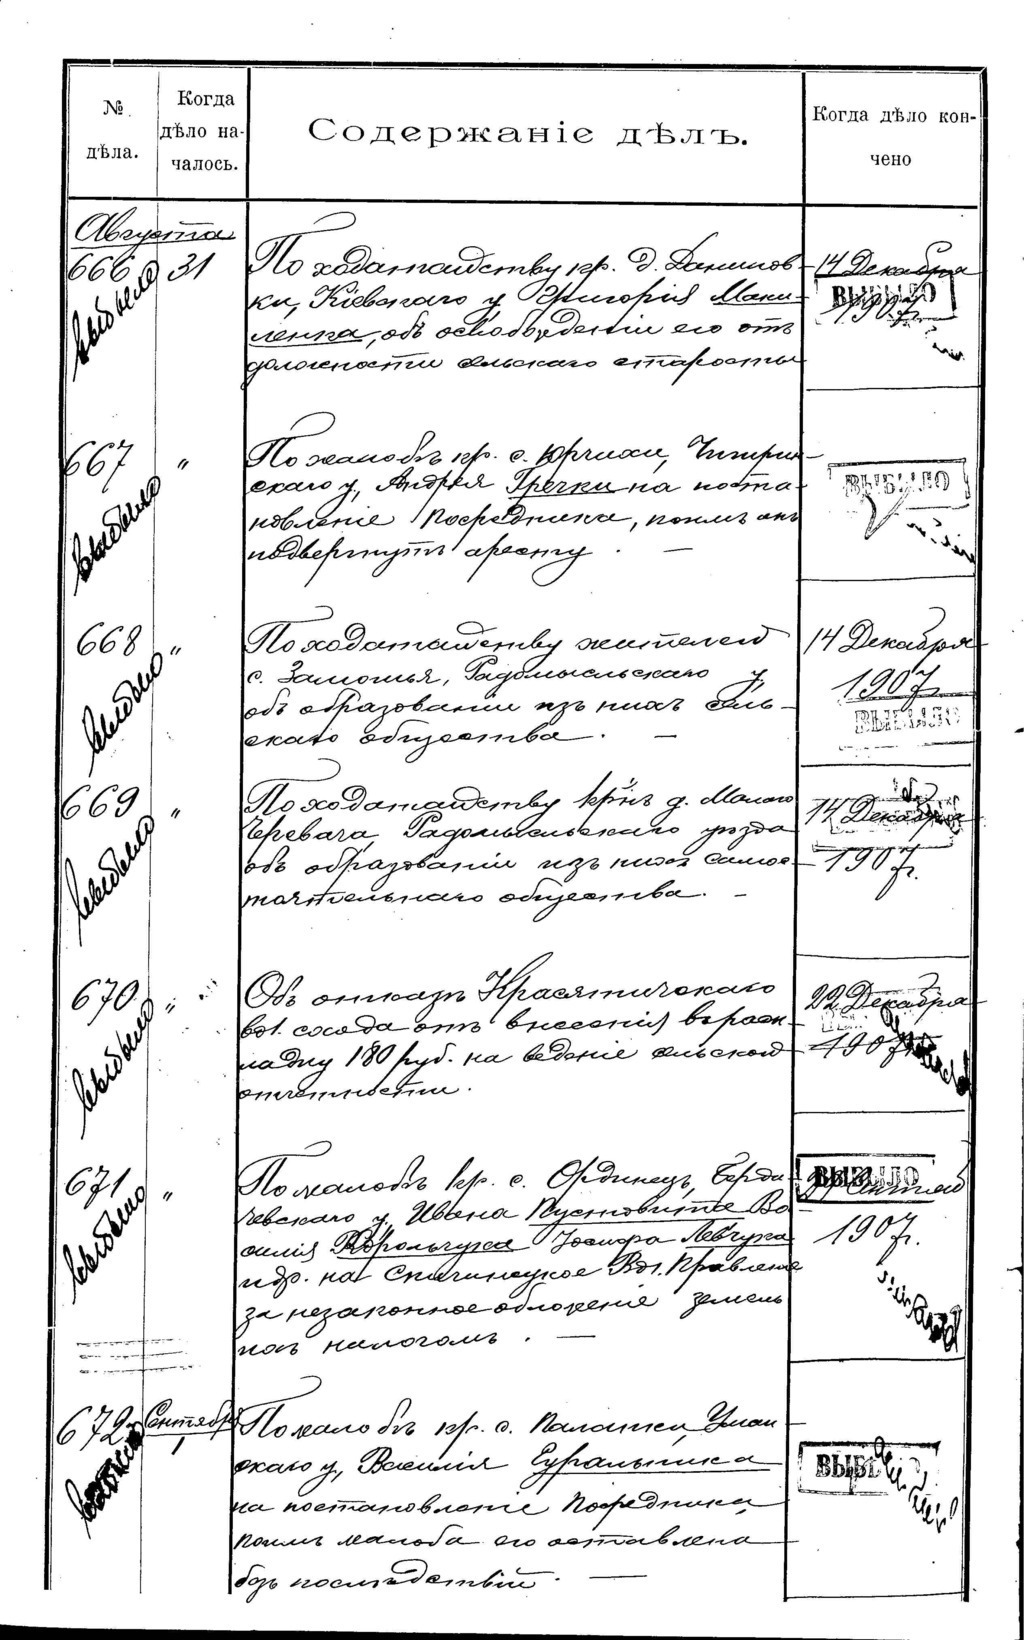 № дѣла.
Когда дѣло началось.
Содержаніе дѣлъ.
Когда дѣло кончено
Августа
666
31
выбыло
По ходатайству кр. д. Данилов-
ки, Кіевскаго у. Григорія Маки-
ленка, объ освобожденіи его отъ
должности сельскаго старосты
14 Декабря
1907 г.
ВЫБЫЛО
667
"
выбыло
По жалобѣ кр. с. Юрчихи, Чигирин-
скаго у, Андрея Гречки на поста-
новленіе Посредника, коимъ онъ
подвергнутъ аресту. —
ВЫБЫЛО
668
"
выбыло
По ходатайству жителей
с. Замошья, Радомысльскаго у,
объ образованіи изъ нихъ сель-
скаго общества. —
14 Декабря
1907 г.
ВЫБЫЛО
669
"
выбыло
По ходатайству кр'нъ д. Малаго
Черевача, Радомысльскаго уѣзда
объ образованіи изъ нихъ самос-
тоятельнаго общества. —
14 Декабря
1907 г.
670
"
выбыло
Объ отказѣ Красятичскаго
вол. схода отъ внесенія въ раск-
ладку 180 руб. на веденіе сельской
отчетности.
22 Декабря
1907 г.
671
"
выбыло
По жалобѣ кр. с. Ордынецъ, Берди-
чевскаго у. Ивана Пустовита Ва-
силія Корольчука Іосифа Левчука
и др. на Спичинецкое Вол. Правленіе
за незаконное обложеніе земель
ихъ налогомъ. —
ВЫБЫЛО
1907 г.
672
Сентября
1
По жалобѣ кр. с. Паланки, Уман-
скаго у, Василія
на постановленіе Посредника,
коимъ жалоба его оставлена
безъ послѣдствій. —
ВЫБЫЛО